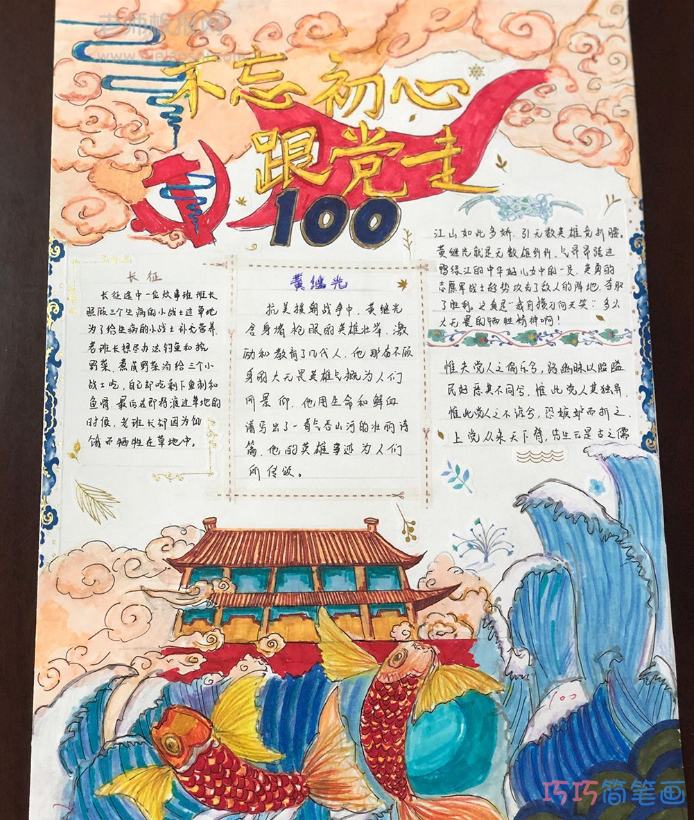 老师板报网
不忘初心
跟党走
100
长征
长征途中一位炊事班班长
照顾三个生病的小战士过草地
为了给生病的小战士补充营养
老班长想尽办法钓鱼和挖
野菜,煮成野菜汤给三个小
战士吃,自己却吃剩下鱼刺和
鱼骨,最后在即将渡过草地的
时候,老班长却因为
牺牲在草地中。
黄继光
抗美援朝战争中,黄继光
舍身堵枪眼的英雄壮举,激
励和教育了几代人,他那奋不顾
身的大无畏英雄气概为人们
所景仰,他用生命和鲜血
谱写出了一首气吞山河的壮丽诗
篇,他的英雄事迹为人们
所传颂。
江山如此多娇,引无数英雄竞折腰,
黄继光就是无数英雄
鸭绿江的中华好儿女中的一员
志愿军战士趁势攻占了敌人的阵地,夺取
了胜利
大无畏的牺牲精神啊!
惟夫党人之偷乐兮,路幽昧以险隘
民好恶其不同兮,惟此党人其独异
惟此党人之不谅兮,恐嫉妒而折之
上党从来天下脊,先生元是古之儒
巧巧简笔画